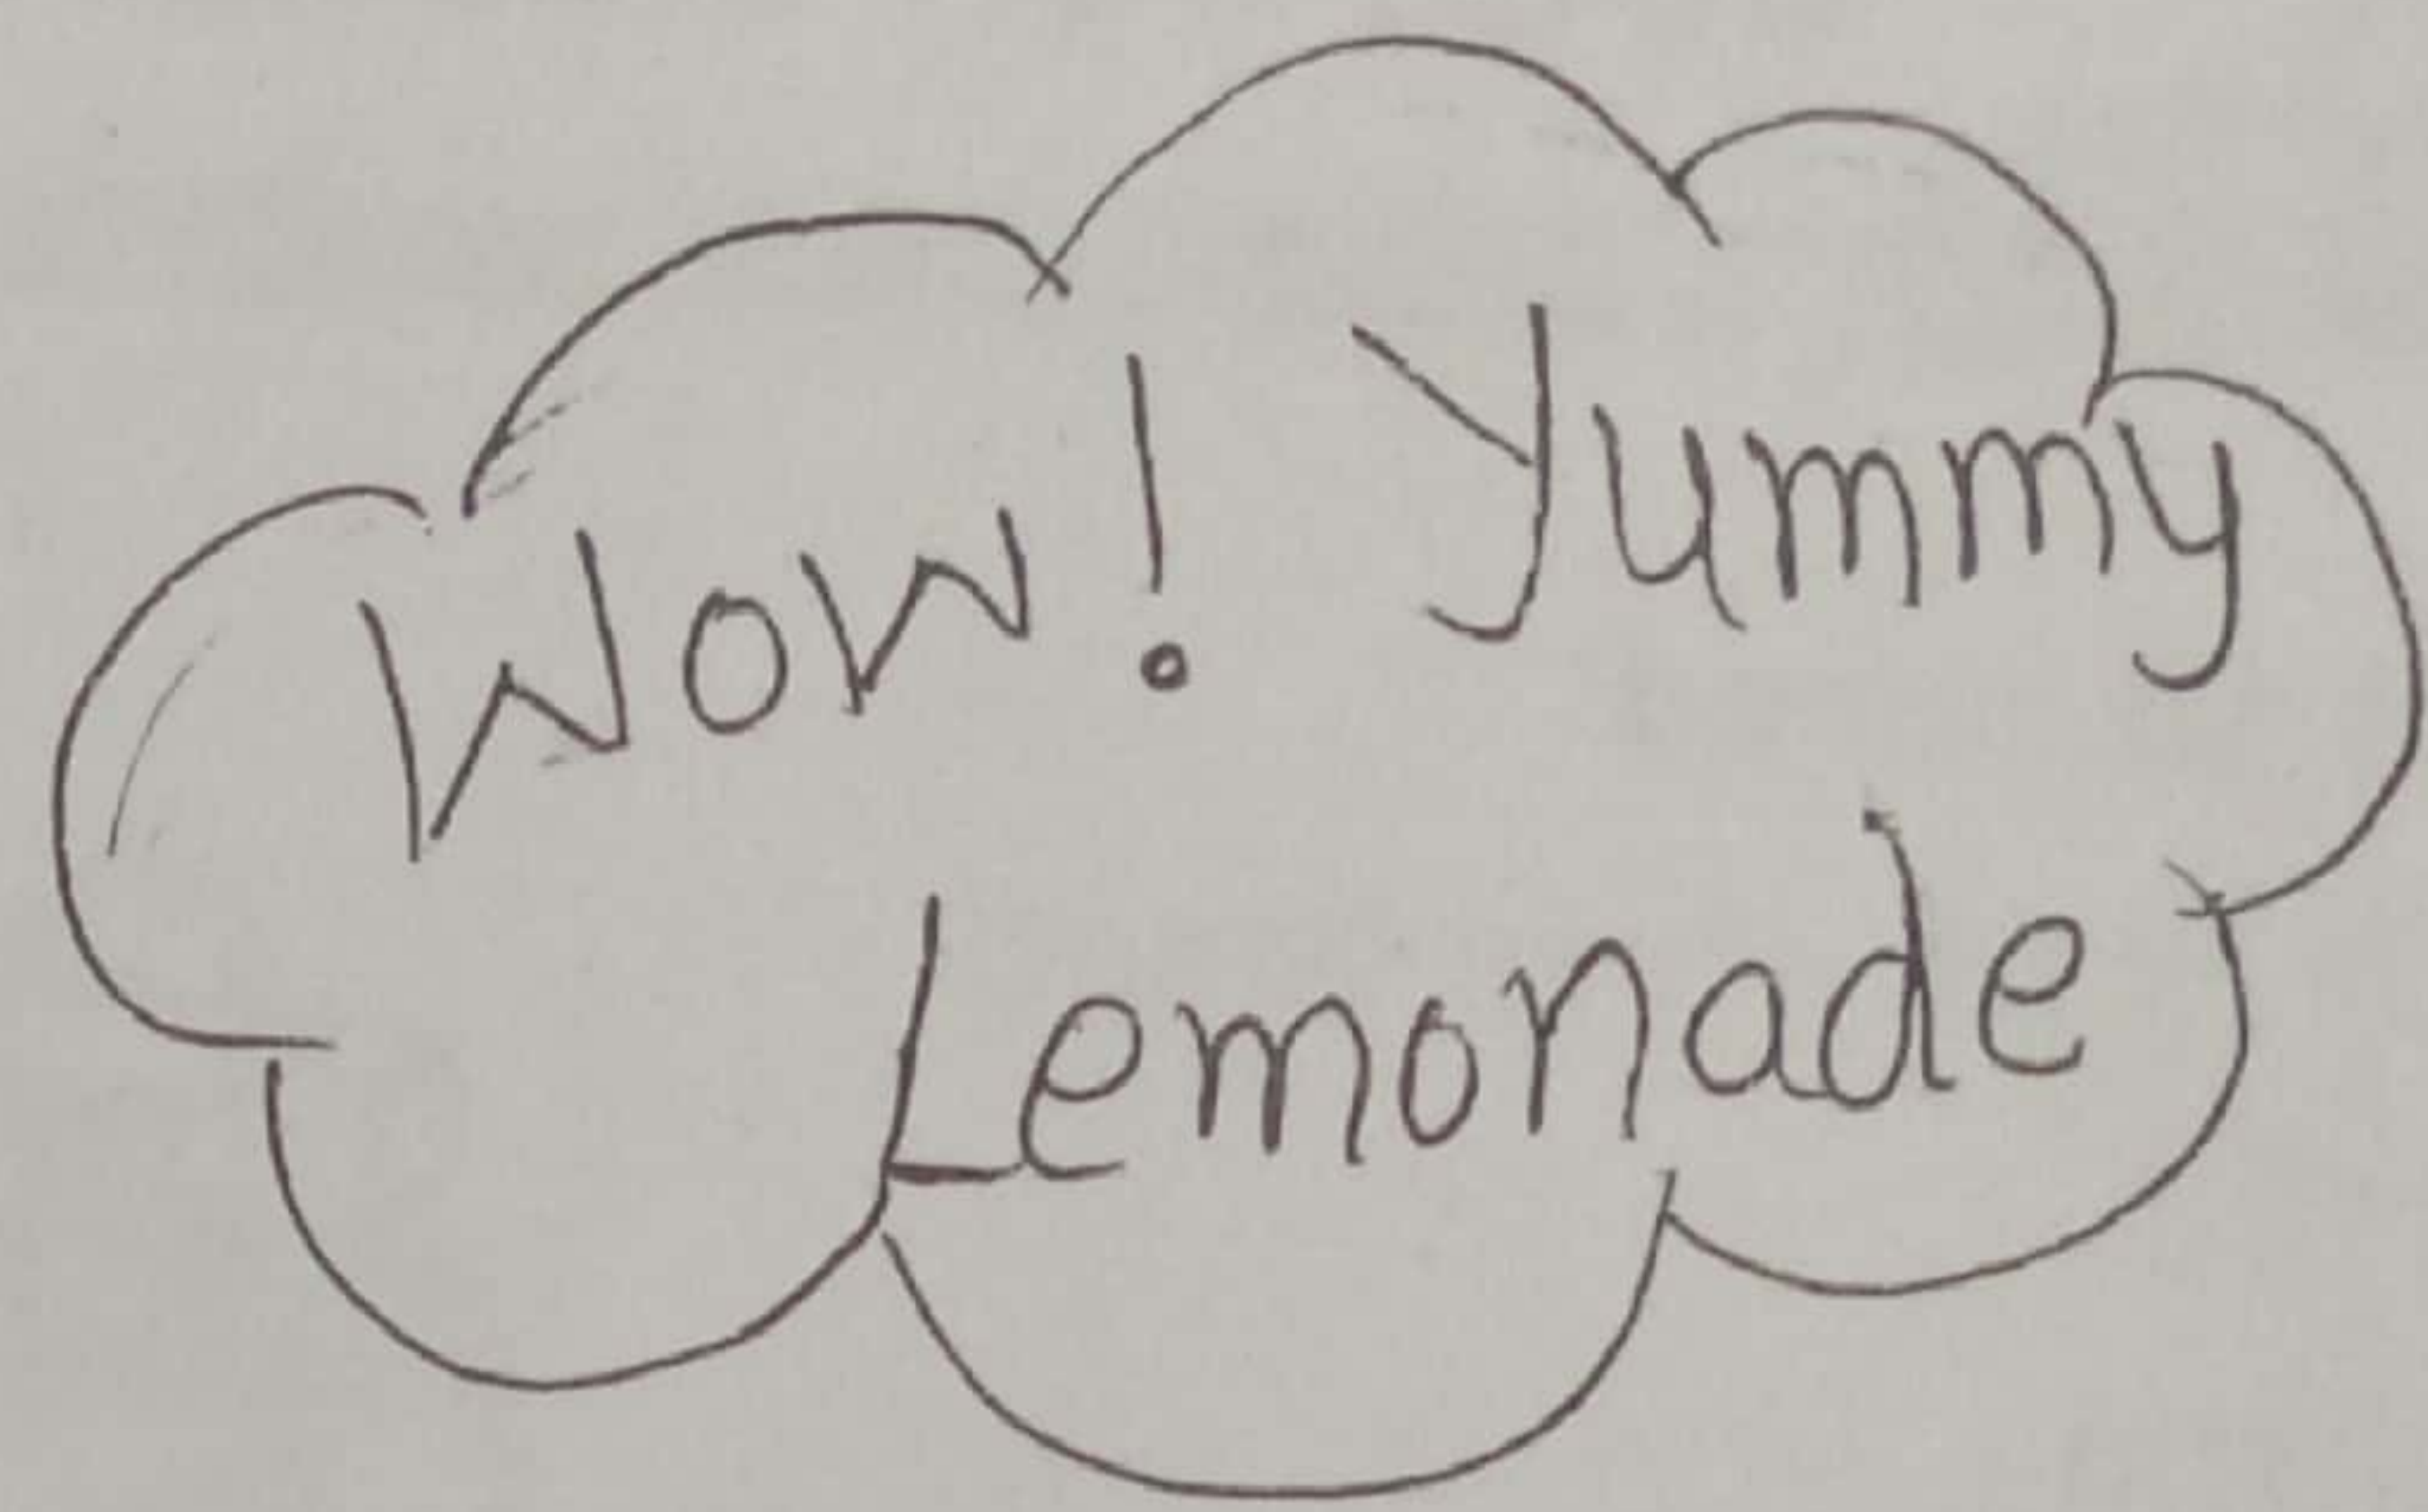 Wow! Yummy
Lemonade